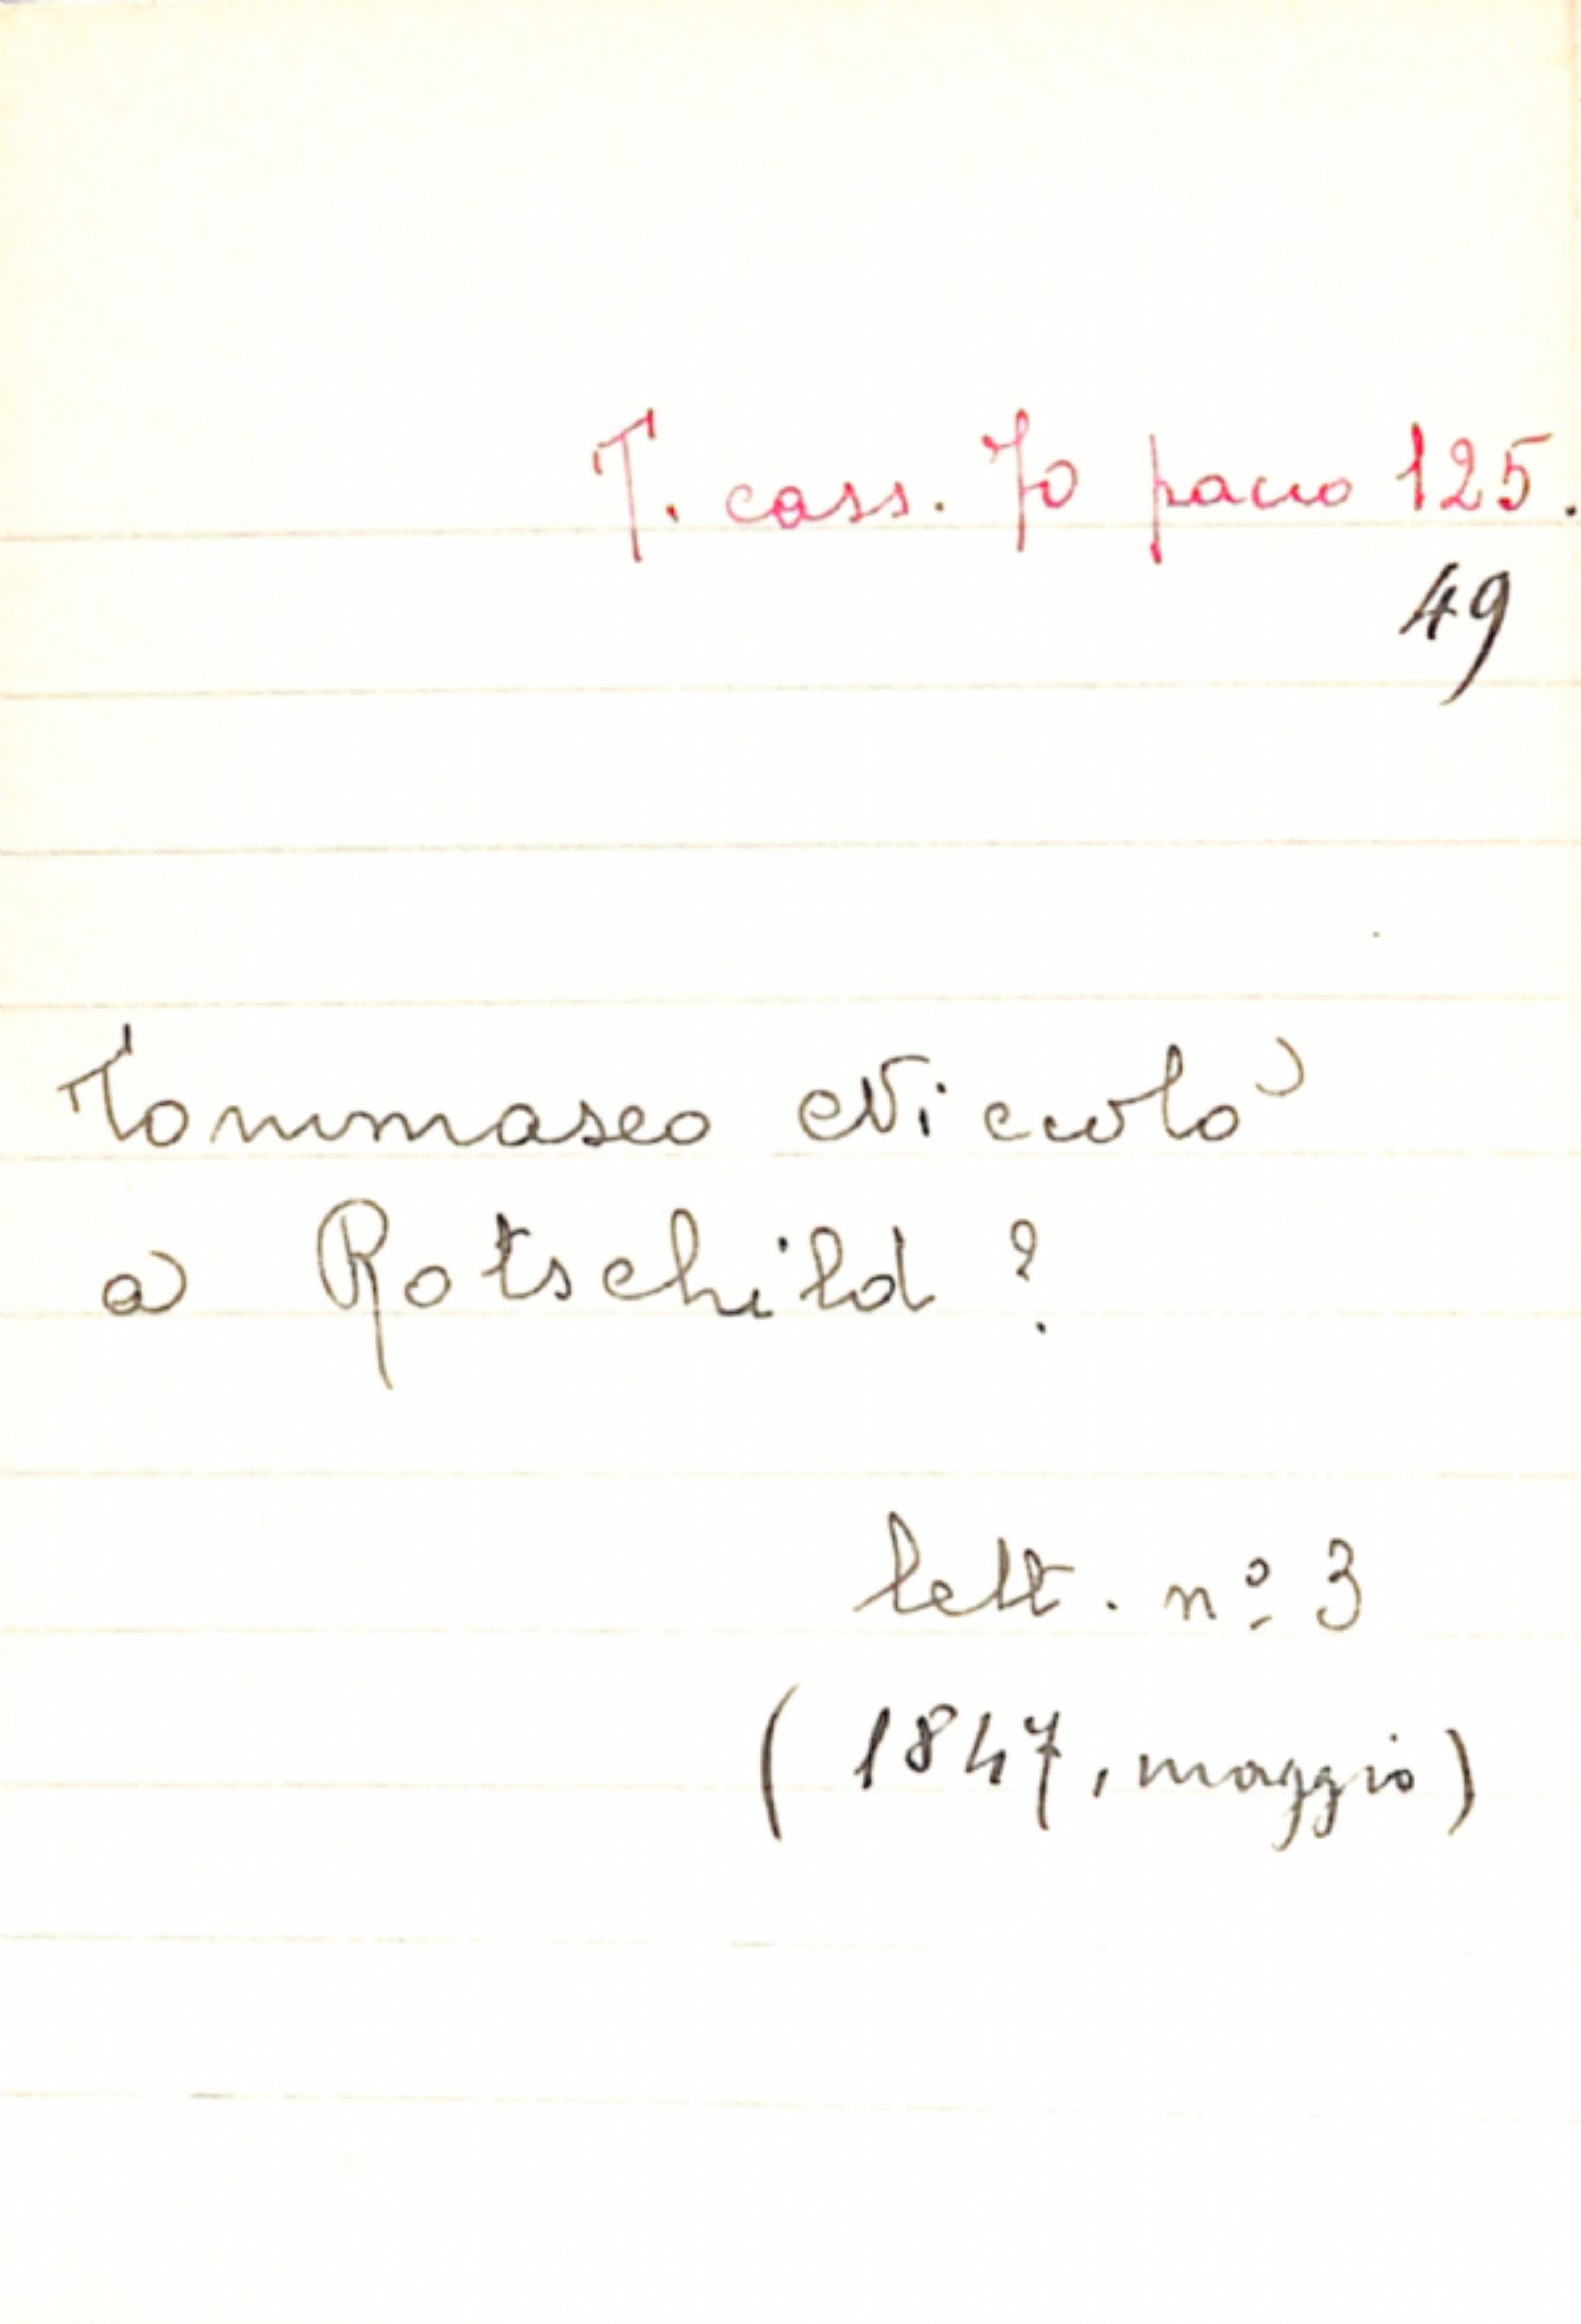 T. cass. 70 pacco 125.
49
Tommaseo Niccolò
a Rotschild ?
lett. nº 3
( 1847, maggio )